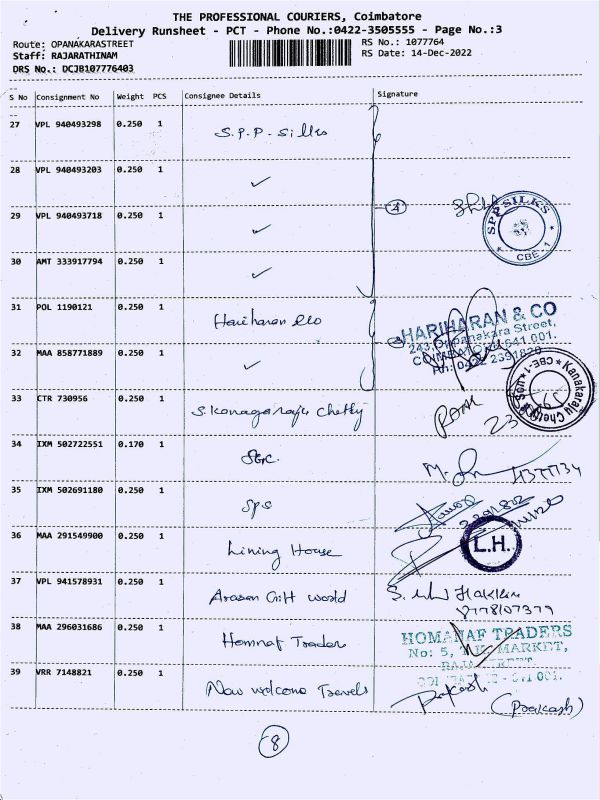 THE PROFESSIONAL COURIERS, Coimbatore
Delivery Runsheet - PCT - Phone No.:0422-3505555 - Page No.:3
Route: OPANAKARASTREET
RS No.: 1077764
Staff: RAJARATHINAM
RS Date: 14-Dec-2022
DRS No.: DCJB107776403
S No Consignment No Weight PCS Consignee Details Signature
27 VPL 940493298 0.250 1 S.P.P. Silks
28 VPL 940493203 0.250 1 ✓
29 VPL 940493718 0.250 1 ✓ 4
SPP SILKS
CBE - 1
30 AMT 333917794 0.250 1 ✓
31 POL 1190121 0.250 1 Hariharan &co
HARIHARAN & CO
243, Oppanakara Street,
COIMBATORE-641 001.
Ph: 0422 2391820
32 MAA 858771889 0.250 1 ✓
Kanakaraju Chetty & Son
CBE-1
33 CTR 730956 0.250 1 S. Kanagaraju Chetty
34 IXM 502722551 0.170 1
35 IXM 502691180 0.250 1 SPS
36 MAA 291549900 0.250 1 Lining House
L.H.
37 VPL 941578931 0.250 1 Arasan Gift world
9778107379
38 MAA 296031686 0.250 1 Homnaf Traders
HOMANAF TRADERS
No: 5, T.K. MARKET,
RAJA STREET
COIMBATORE - 641 001.
39 VRR 7148821 0.250 1 New welcome Travels Prakash (Prakash)
8